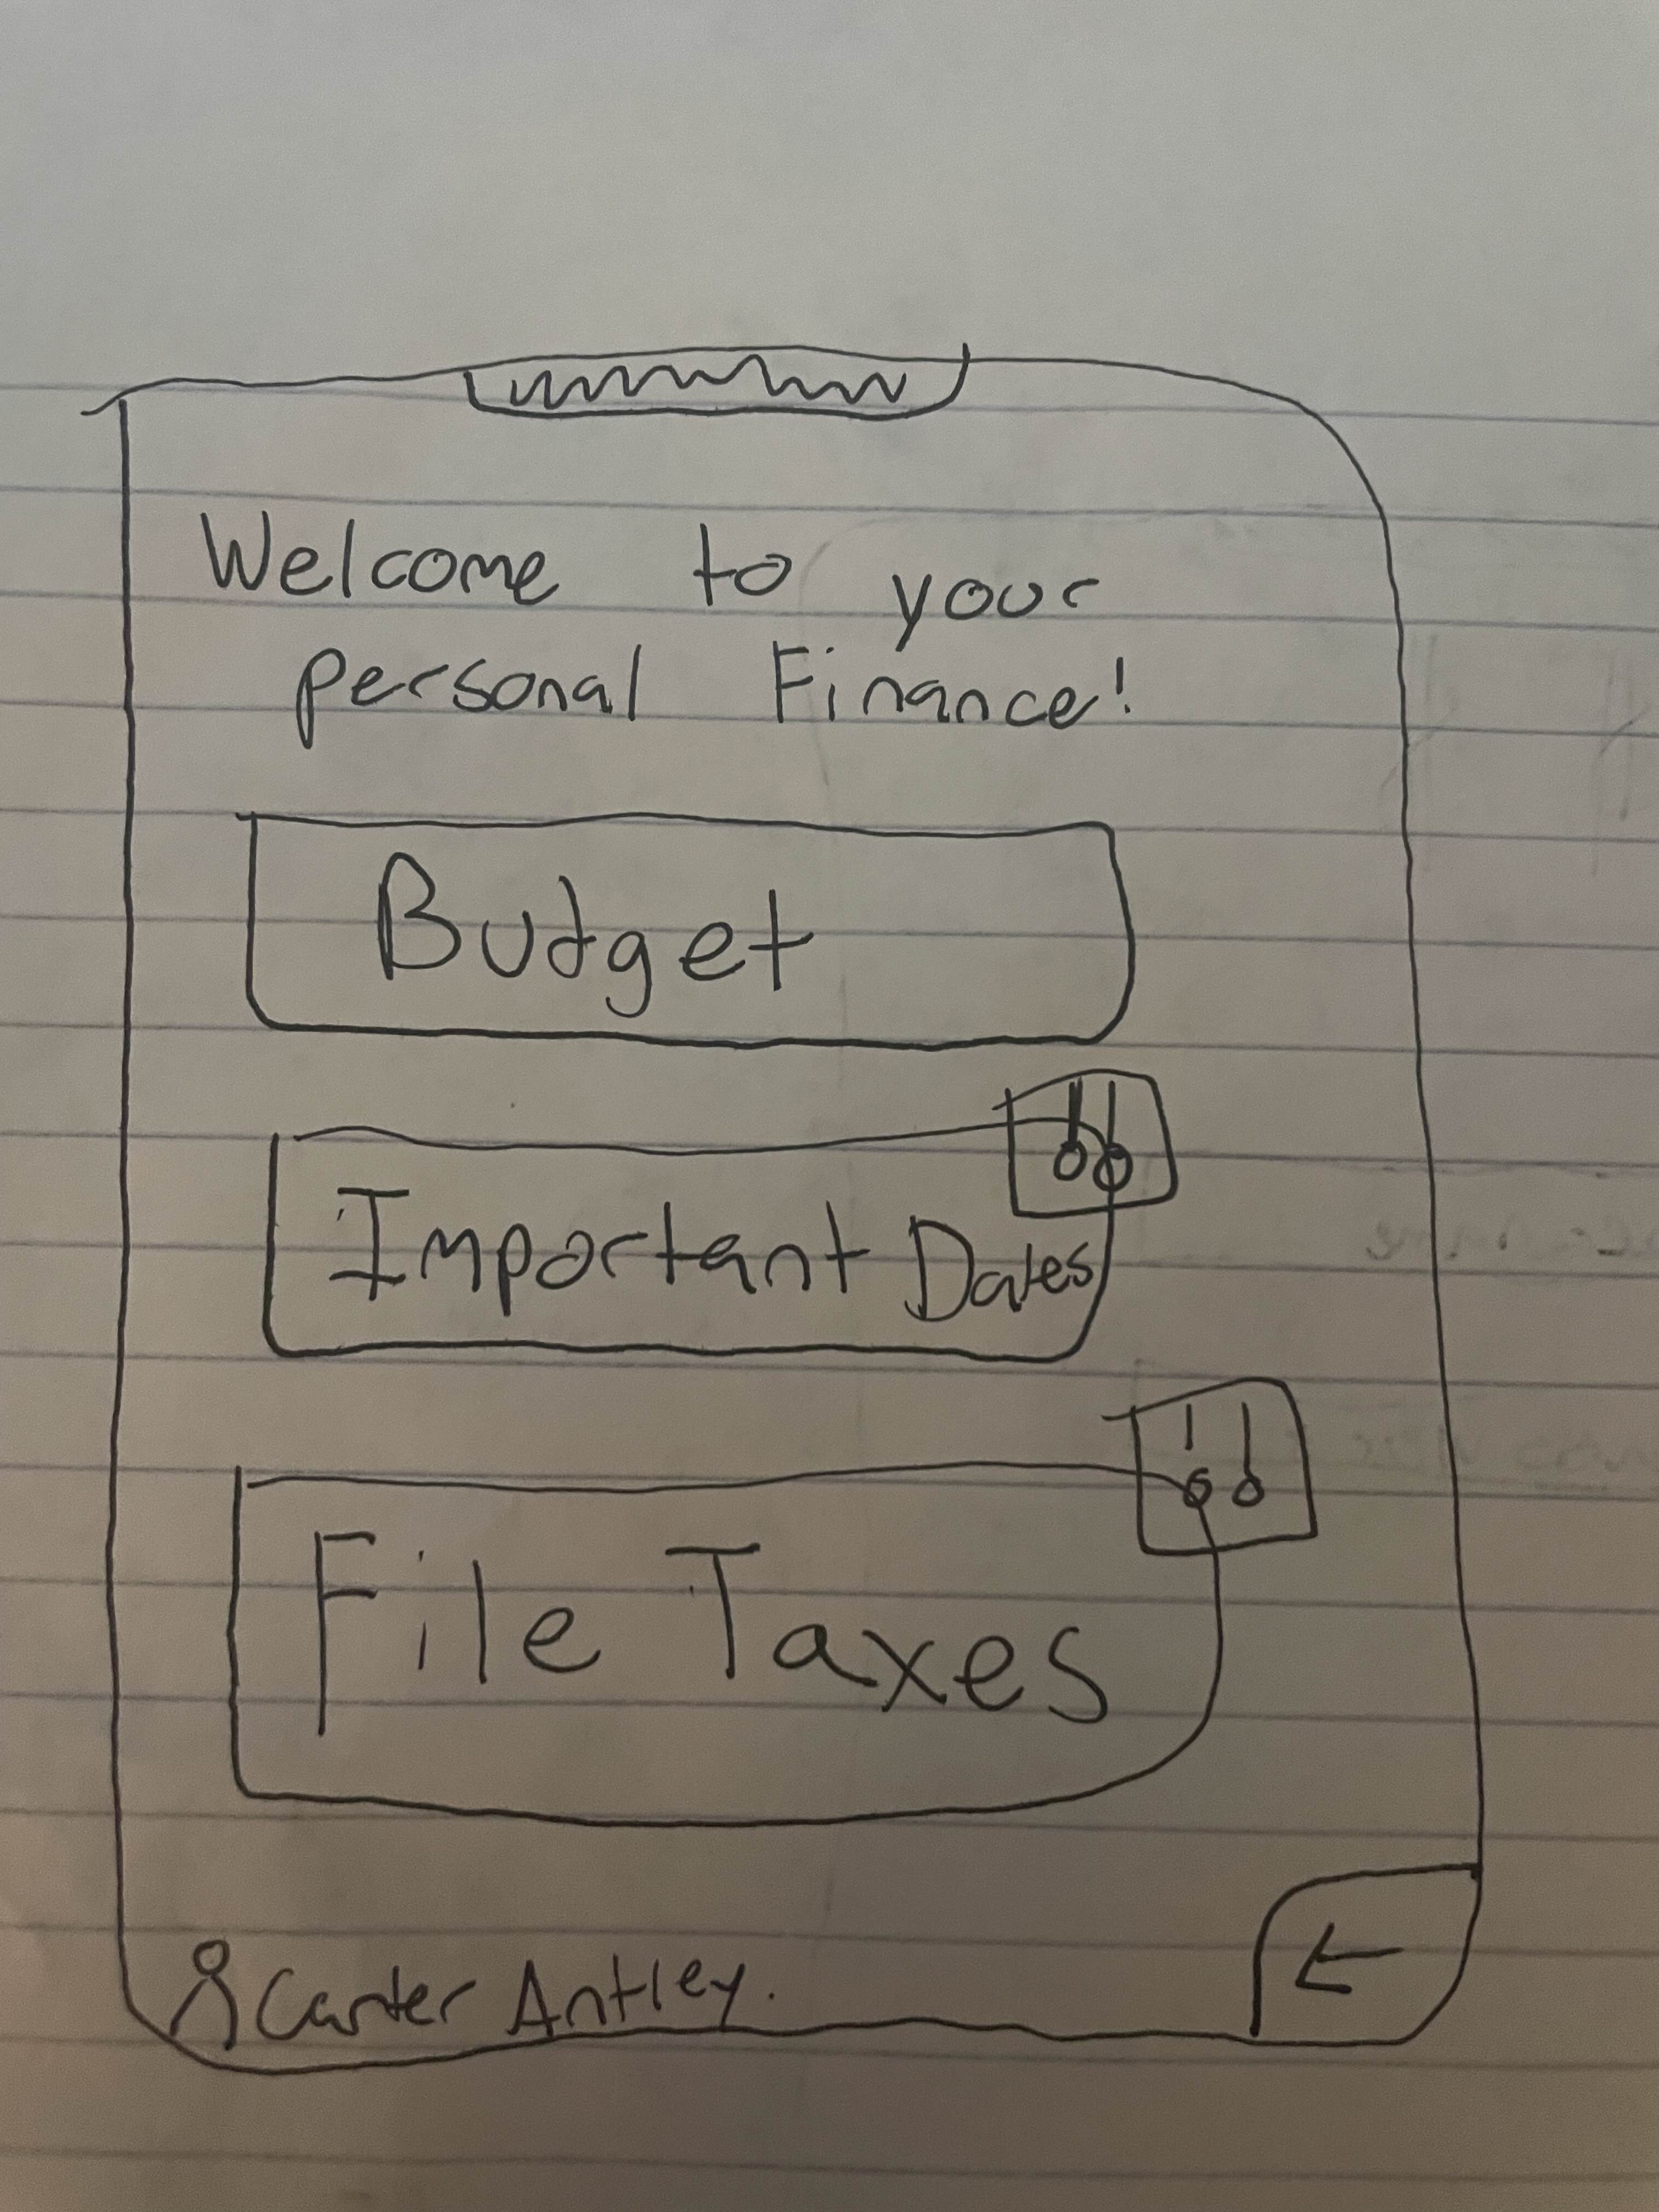 Welcome to your
personal Finance!
Budget
!!
Important Dates
!!
File Taxes
Carter Antley.